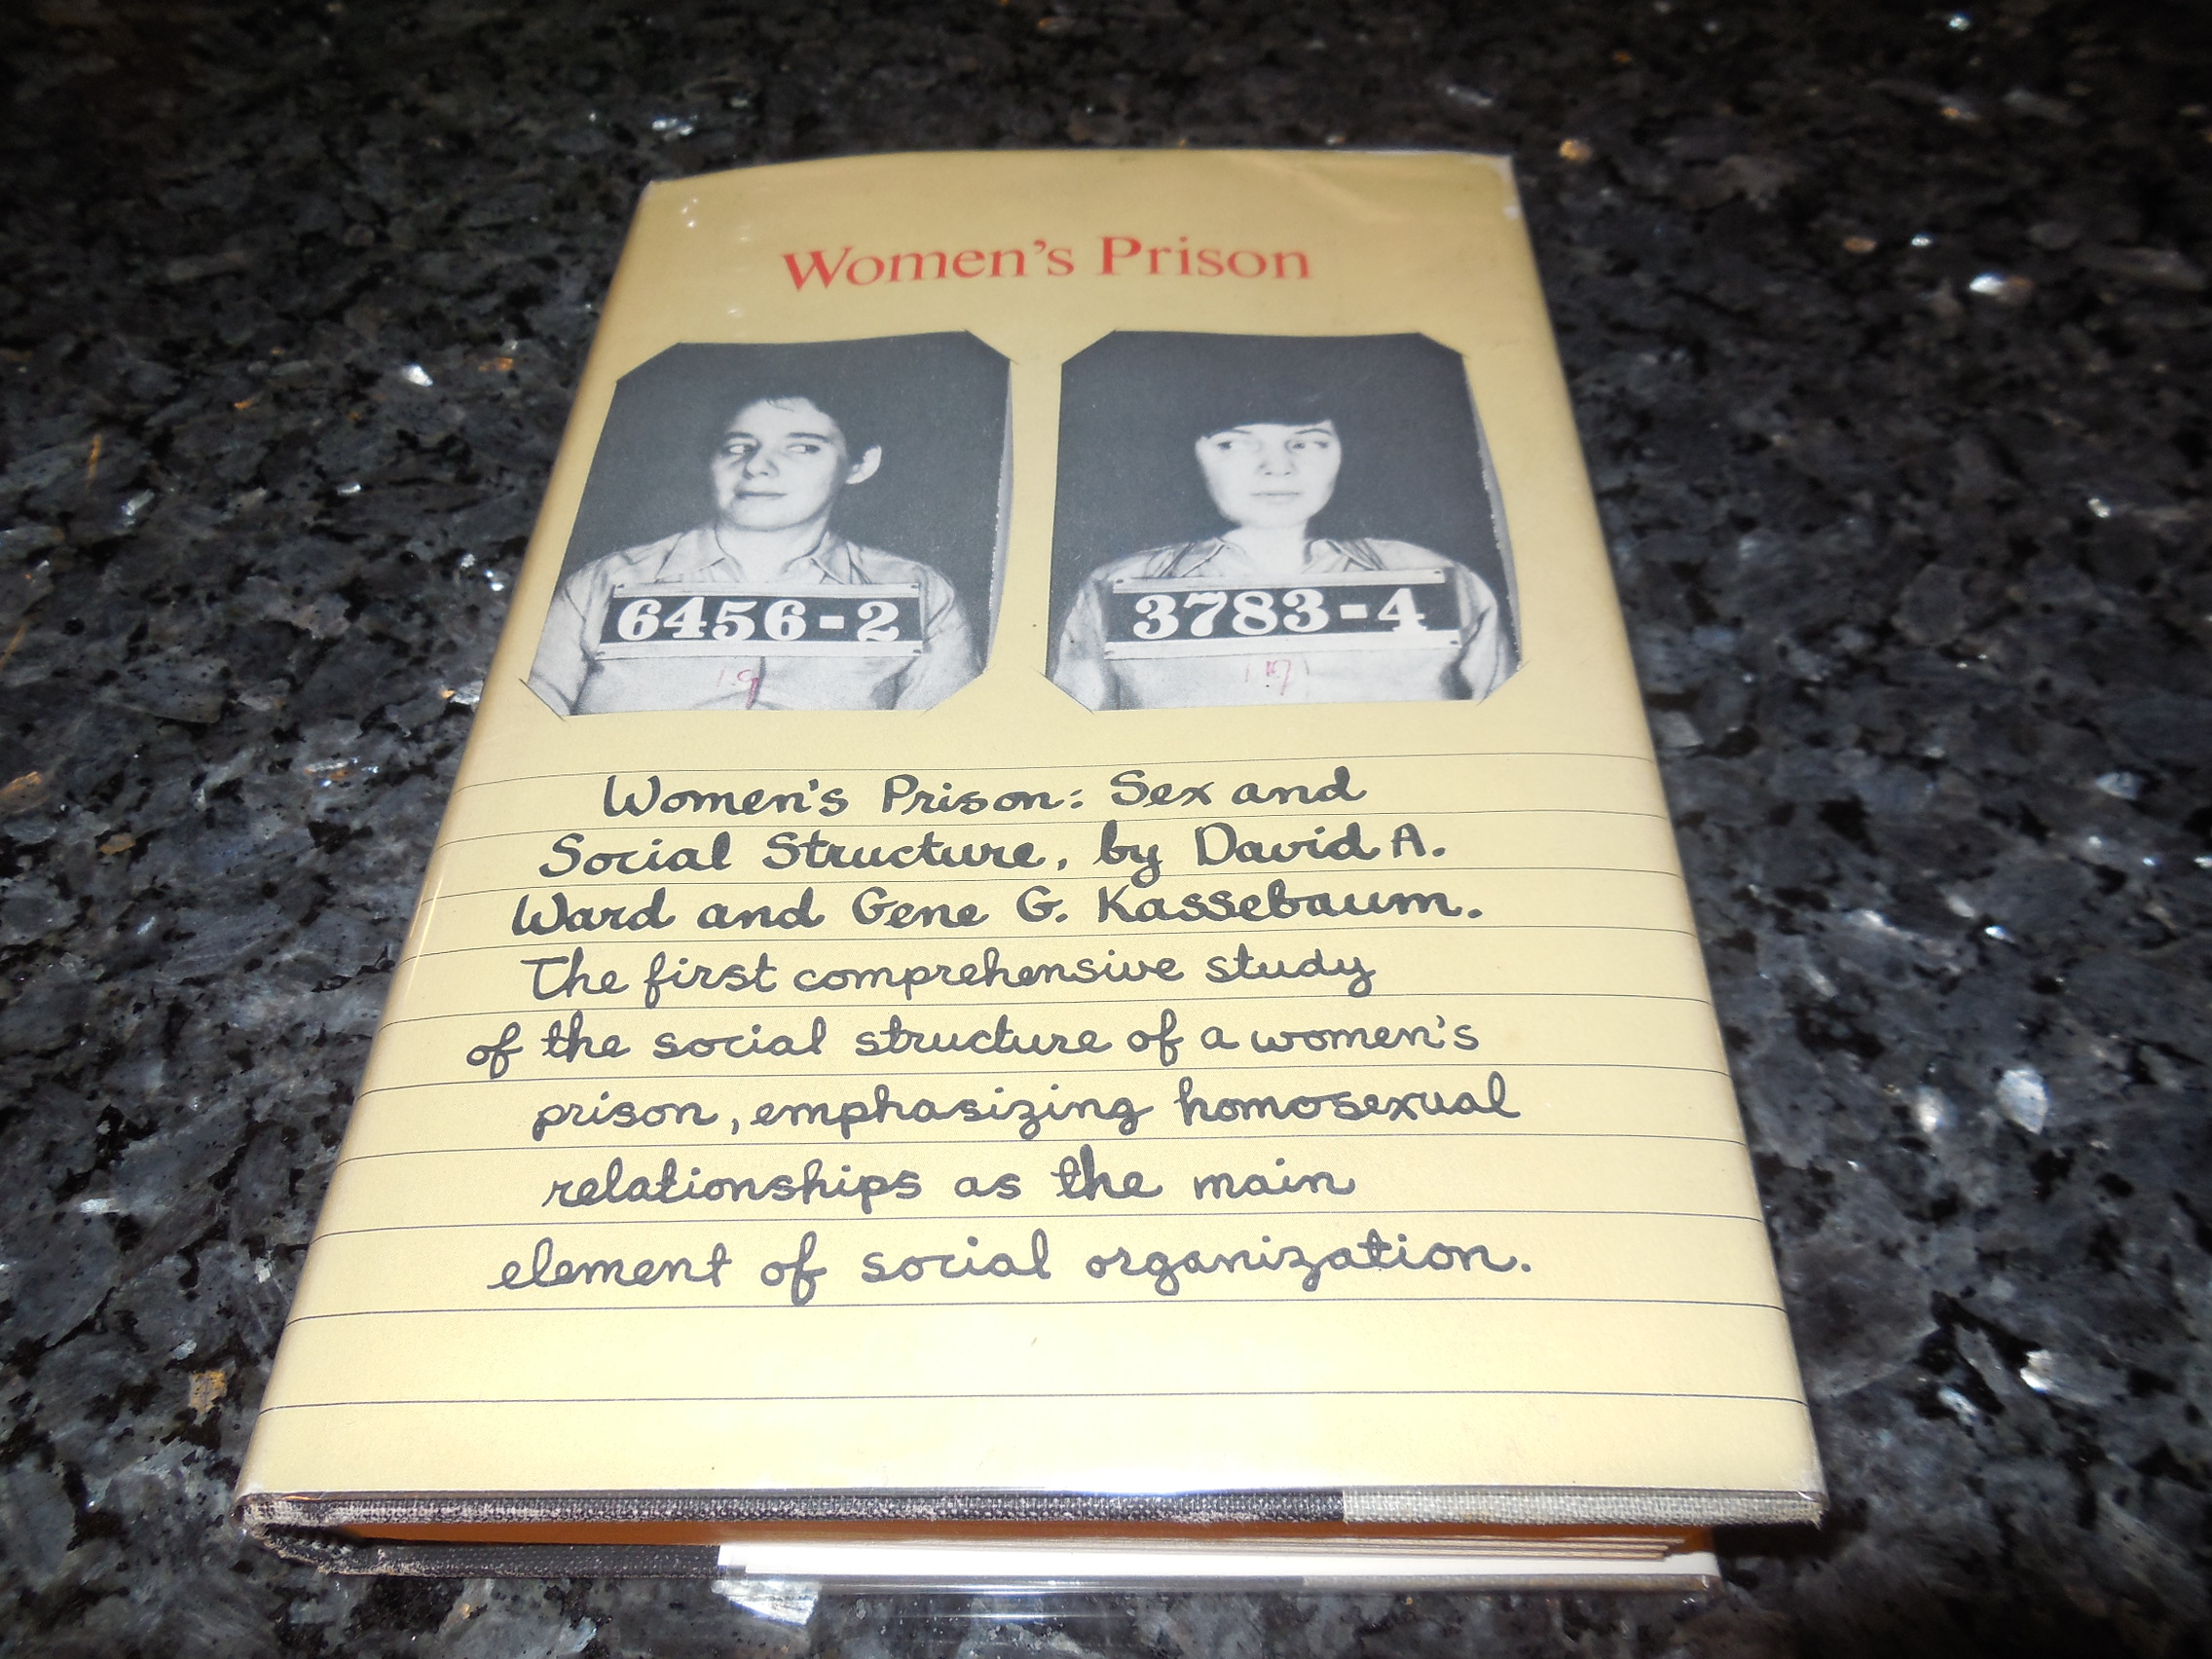 Women's Prison
6456-2
3783-4
Women's Prison: Sex and
Social Structure, by David A.
Ward and Gene G. Kassebaum.
The first comprehensive study
of the social structure of a women's
prison, emphasizing homosexual
relationships as the main
element of social organization.